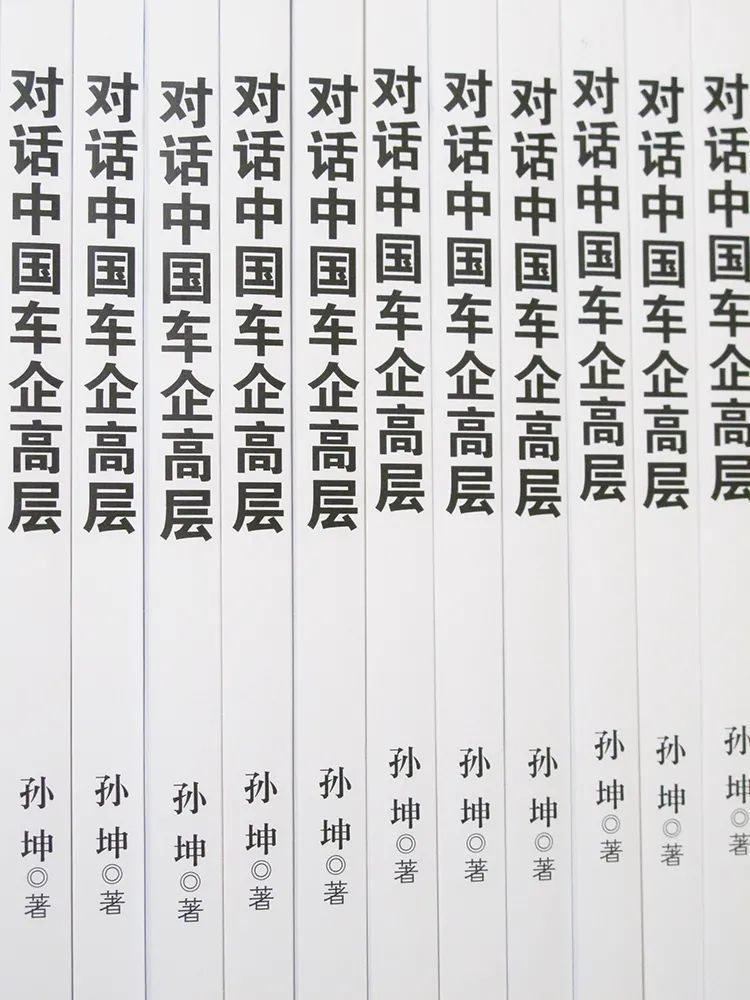 对话中国车企高层
孙坤◎著
对话中国车企高层
孙坤◎著
对话中国车企高层
孙坤◎著
对话中国车企高层
孙坤◎著
对话中国车企高层
孙坤◎著
对话中国车企高层
孙坤◎著
对话中国车企高层
孙坤◎著
对话中国车企高层
孙坤◎著
对话中国车企高层
孙坤◎著
对话中国车企高层
孙坤◎著
对话中国车企高层
孙坤◎著